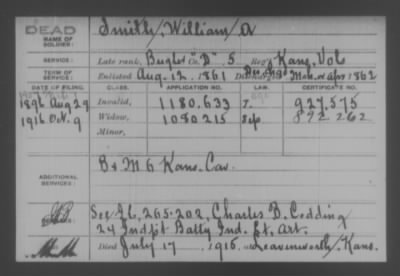 DEAD
NAME OF SOLDIER:
Smith, William A
SERVICE:
Late rank, Bugler Co. "D", 5 Reg't Kans. Vol
TERM OF SERVICE:
Enlisted Aug. 12, 1861 Discharged 1862
DATE OF FILING. CLASS. APPLICATION NO. LAW. CERTIFICATE NO.
1896 Aug 29 Invalid, 1180.633 927.575
1916 Oct. 9 Widow, 1080215 872.262
Minor,
ADDITIONAL SERVICES:
B & M 6 Kans. Cav.
See 265.202, Charles B. Codding
24 Indpt Batty Ind. Lt. Art.
Died July 17, 1916, Leavenworth, Kans.